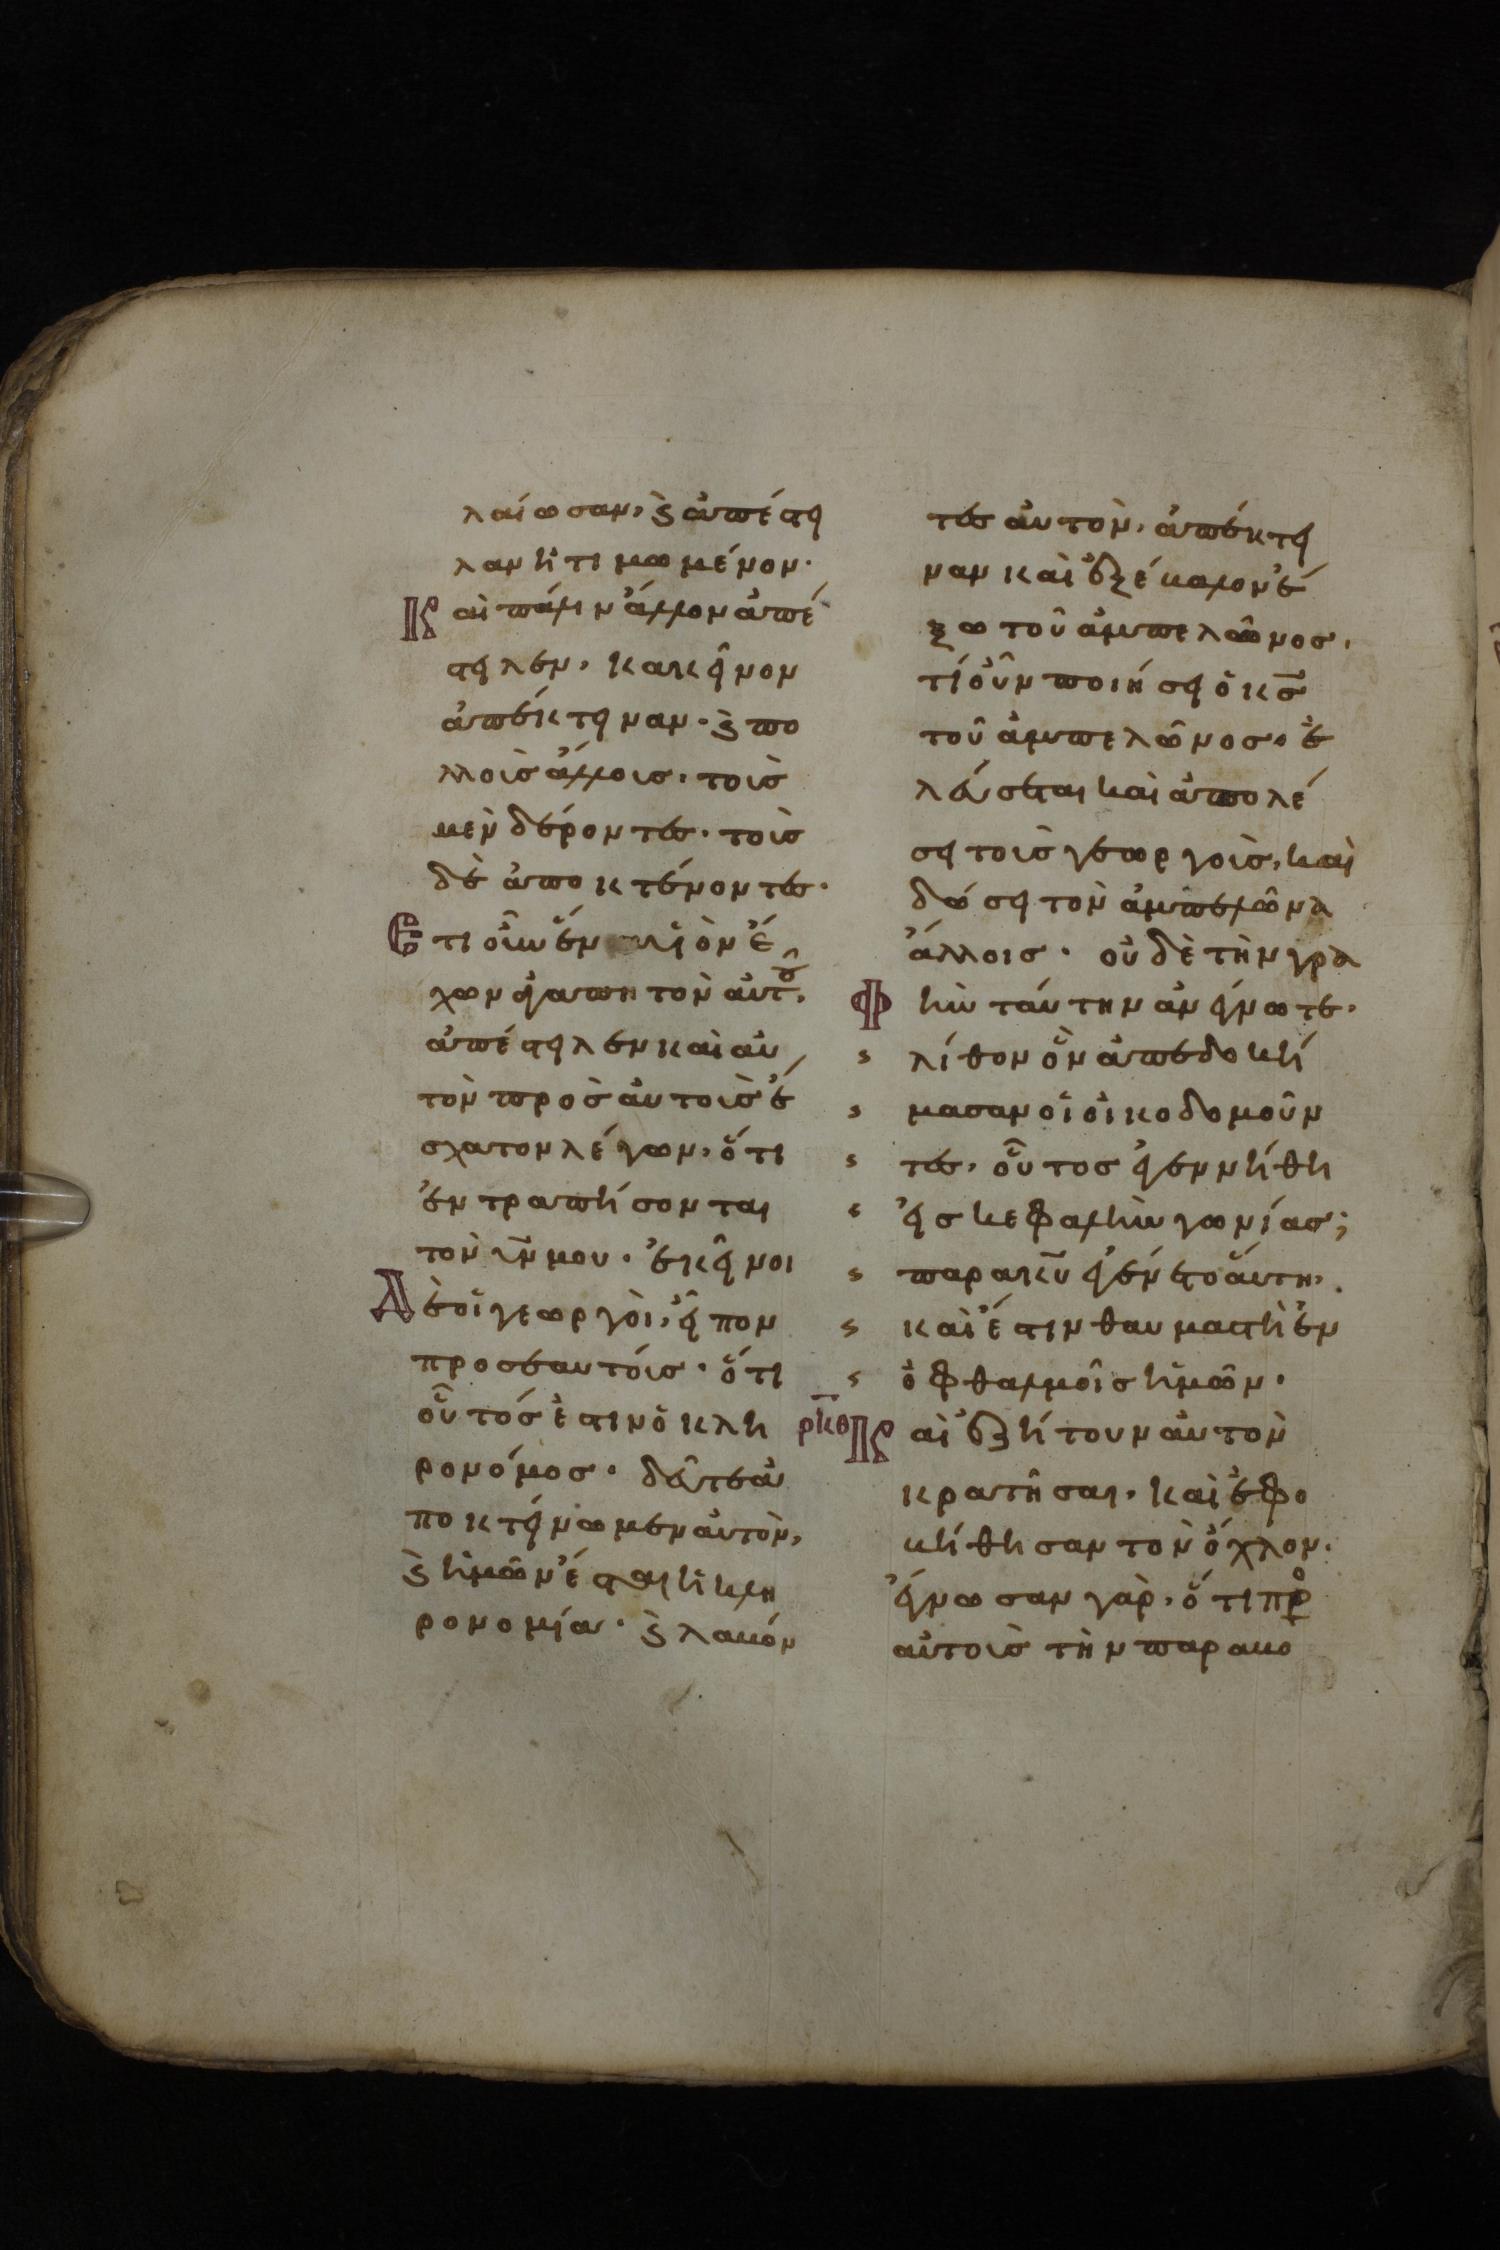 λαίωσαν, ϗ ἀπέστει
λαν ἠτιμωμένον·
Καὶ πάλιν ἄλλον ἀπέ
στειλεν, κακεῖνον
ἀπέκτειναν· ϗ πο
λλοὶσ ἄλλοισ, τοὶσ
μὲν δέροντεσ· τοὶσ
δὲ ἀποκτένοντεσ·
Ἔτι οὖν ἕν υἱὸν ἔ
χων ἀγαπητὸν αὐτοῦ,
ἀπέστειλεν καὶ αὐ
τὸν πρὸσ αὐτοὶσ ἔ
σχατον λέγων, ὅτι
ἐντραπήσονται
τὸν υ̅ν̅ μου· ἐκεῖνοι
Δὲ οἱ γεωργοὶ, εἶπον
προσεαυτόισ· ὅτι
οὗτόσ ἐστιν ὁ κλη
ρονόμοσ· δεῦτε ἀ
ποκτείνωμεν αὐτὸν,
ϗ ἡμῶν ἔσται ἡ κλη
ρονομία· ϗ λαβόν
τεσ αὐτὸν, ἀπέκτει
ναν καὶ ἐξέβαλον ἔ
ξω τοῦ ἀμπελῶνοσ,
τί οὖν ποιήσει ὁ κ̅σ̅
τοῦ ἀμπελῶνοσ· ἐ
λεύσεται καὶ ἀπολέ
σει τοὶσ γεωργοὶσ, καὶ
δώσει τὸν ἀμπελῶνα
ἄλλοισ· οὐδὲ τὴν γρα
Φὴν ταύτην ἀνέγνωτε·
λίθον ὃν ἀπεδοκί
μασαν οἱ οἰκοδομοῦν
τεσ, οὗτοσ ἐγεννήθη
εἰσ κεφαλὴν γωνίασ;
παρα κ̅υ̅ ἐγένετο ἅυτη,
καὶ ἔστιν θαυμαστὴ ἐν
ὀφθαλμοῖσ ἡμῶν·
ρκθ Καὶ ἐζήτουν αὐτὸν
κρατῆσαι, καὶ ἐφο
βήθησαν τὸν ὄχλον·
ἔγνωσαν γὰρ, ὅτι πρὸ
αὐτοὶσ τὴν παραβο